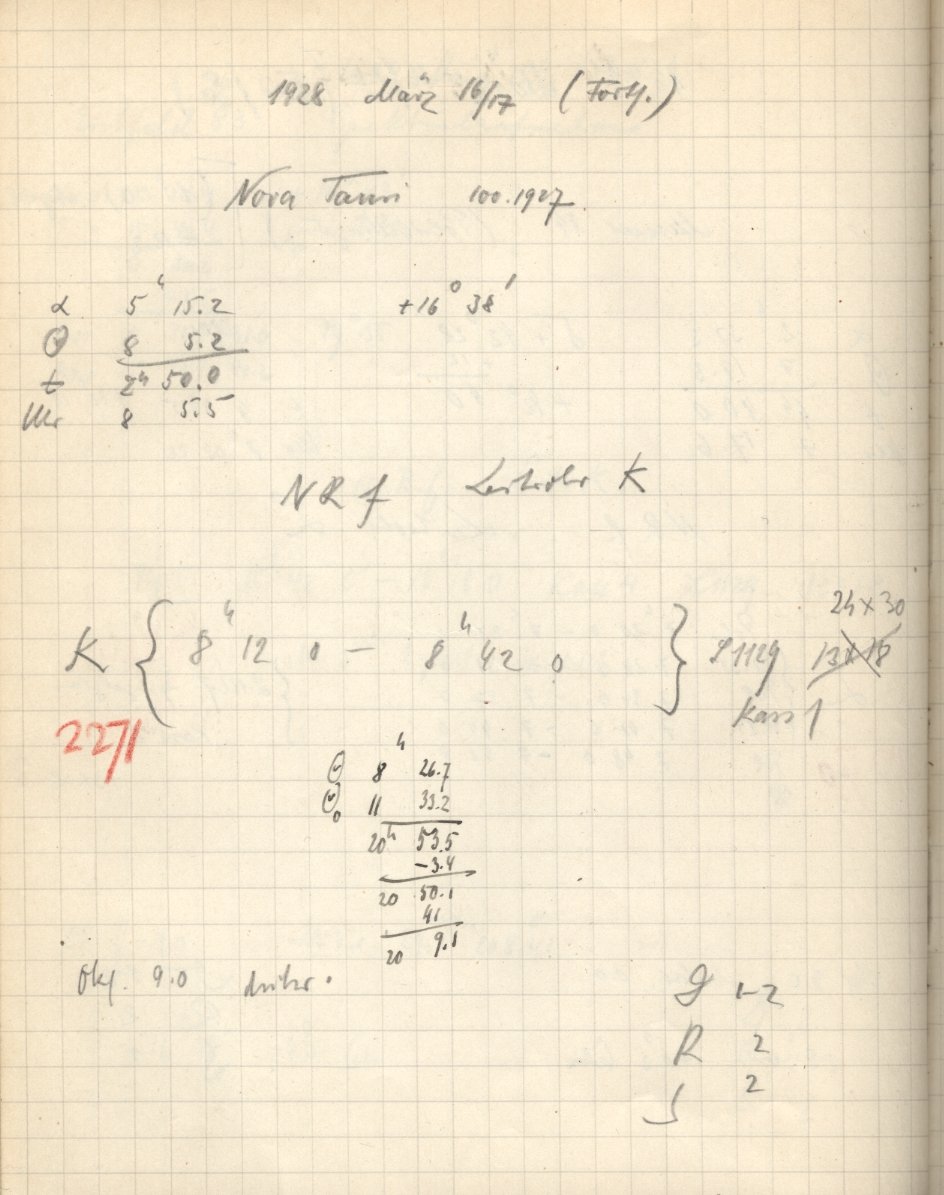 1928 März 16/17 (Forts.)
Nova Tauri 100.1927
α 5ʰ 15.2 +16° 38'
Θ 8 5.2
t 2ʰ 50.0
Uhr 8 5.5
NRf Leitrohr K
24x30
K { 8ʰ 12 0 – 8ʰ 42 0 } 1129 13x18
Kass 1
2271
Θ 8ʰ 26.7
Θ₀ 11 33.2
20ʰ 53.5
-3.4
20 50.1
41
20 9.1
Okl. 9.0
1-2
R 2
S 2